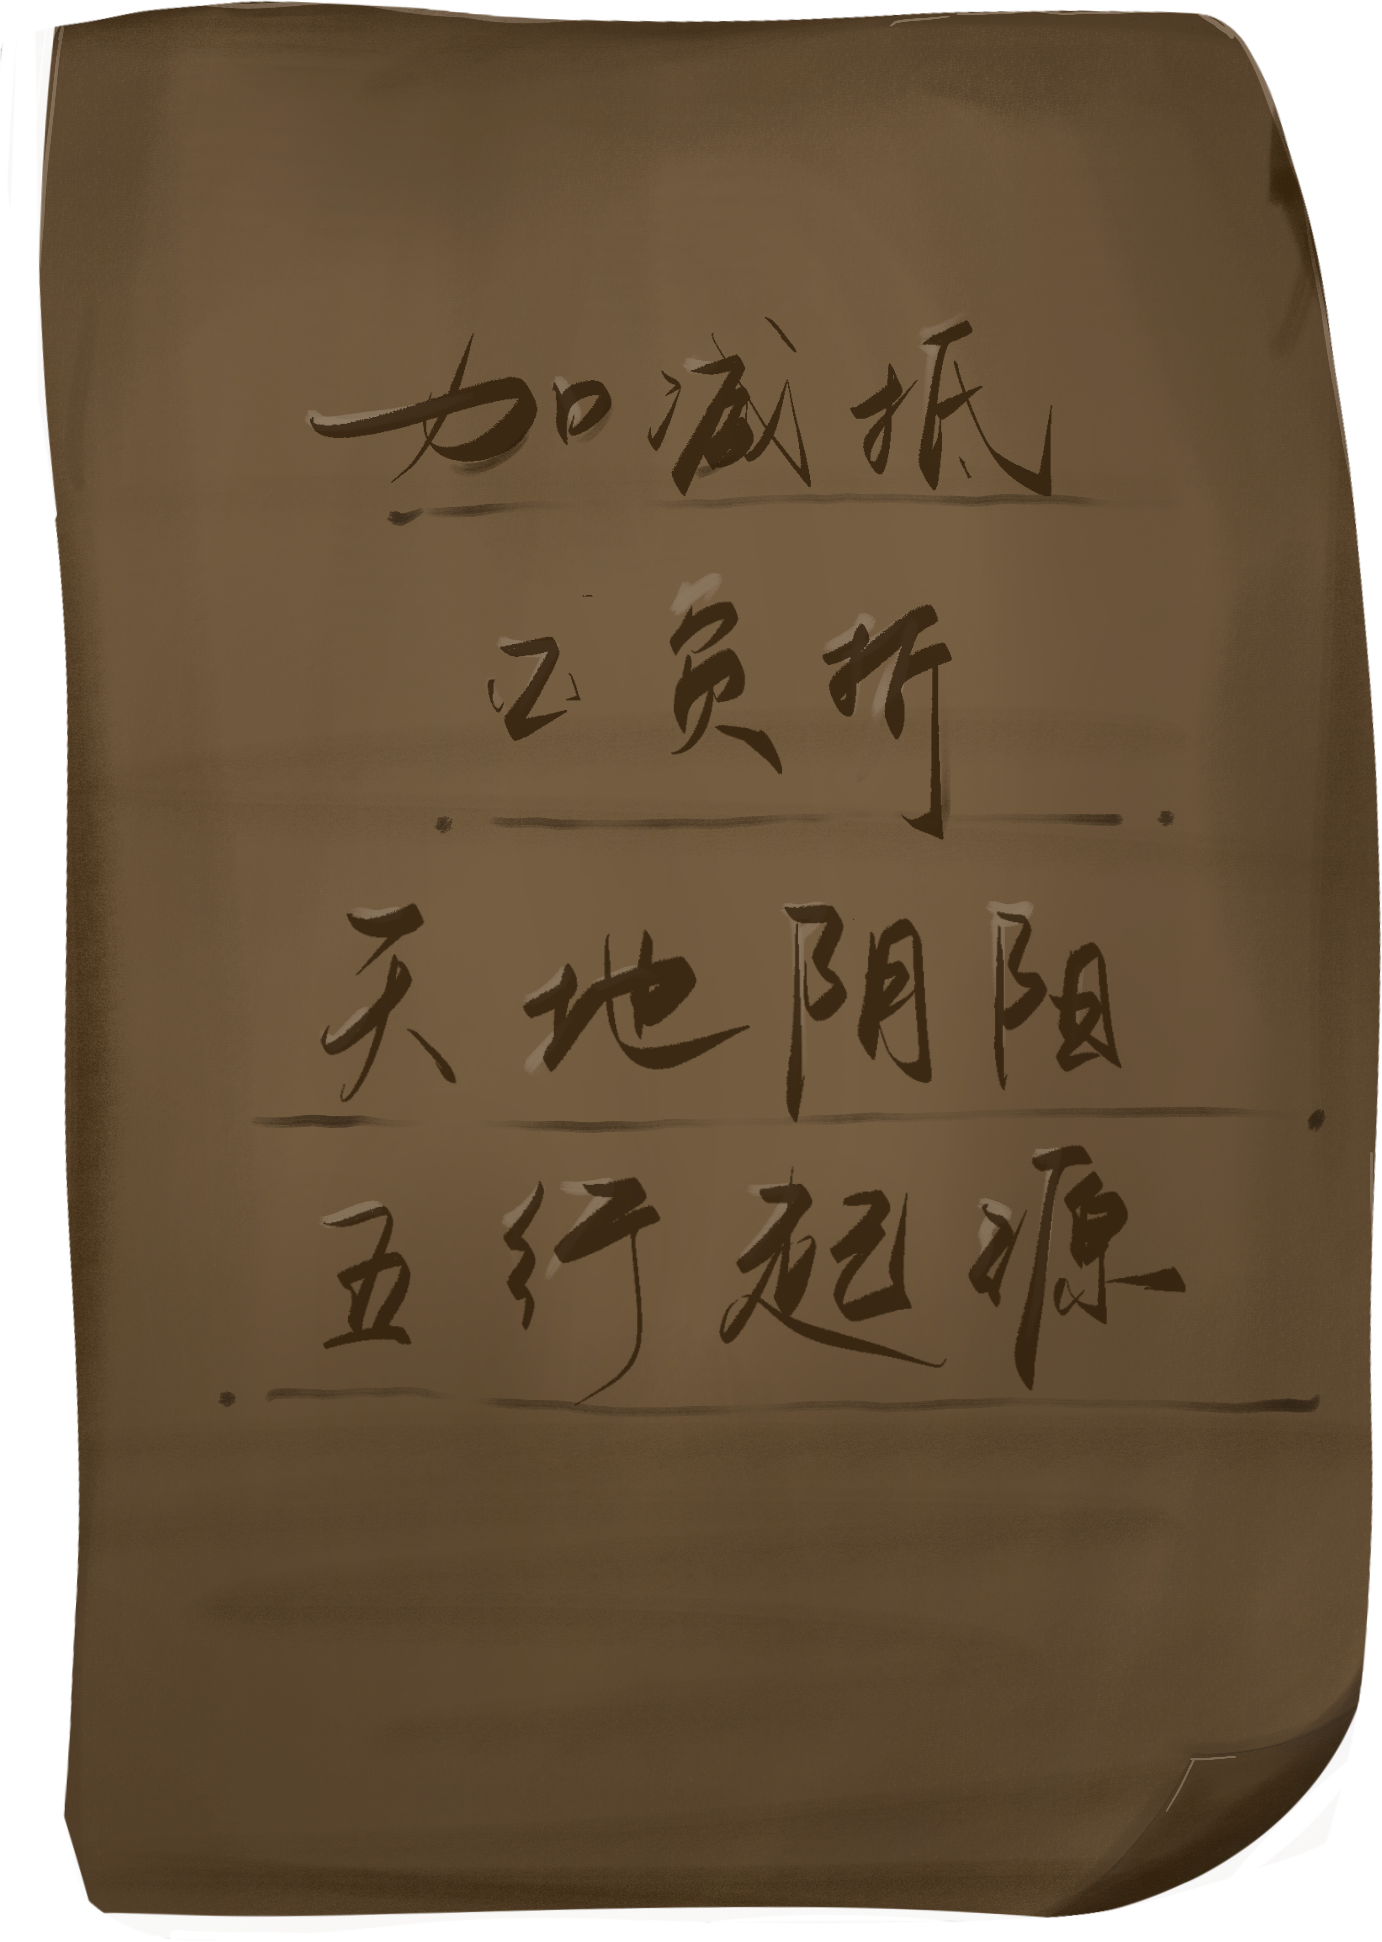 加减抵
正负折
天地阴阳
五行起源